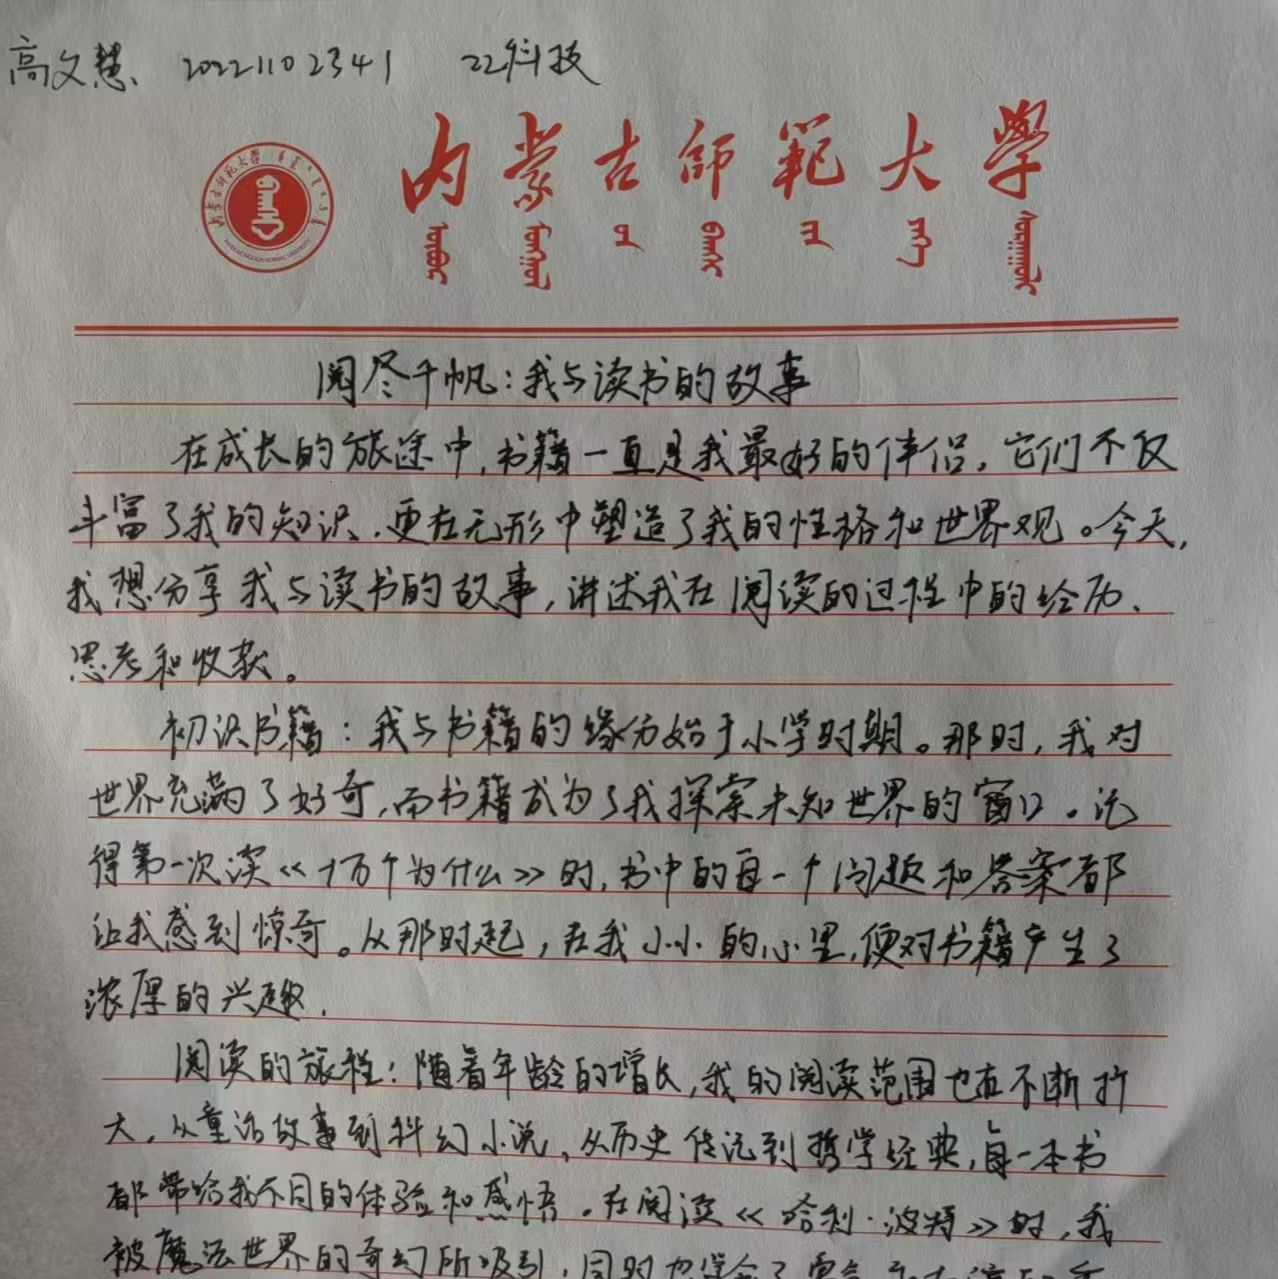 高文慧 20221102341 22科技
内蒙古师範大学
阅尽千帆：我与读书的故事
在成长的旅途中，书籍一直是我最好的伴侣，它们不仅
丰富了我的知识，更在无形中塑造了我的性格和世界观。今天，
我想分享我与读书的故事，讲述我在阅读的过程中的经历、
思考和收获。
初识书籍：我与书籍的缘分始于小学时期。那时，我对
世界充满了好奇，而书籍成为了我探索未知世界的窗口。记
得第一次读《十万个为什么》时，书中的每一个问题和答案都
让我感到惊奇。从那时起，在我小小的心里，便对书籍产生了
浓厚的兴趣．
阅读的旅程：随着年龄的增长，我的阅读范围也在不断扩
大，从童话故事到科幻小说，从历史传记到哲学经典，每一本书
都带给我不同的体验和感悟。在阅读《哈利·波特》时，我
被魔法世界的奇幻所吸引，同时也学会了勇气